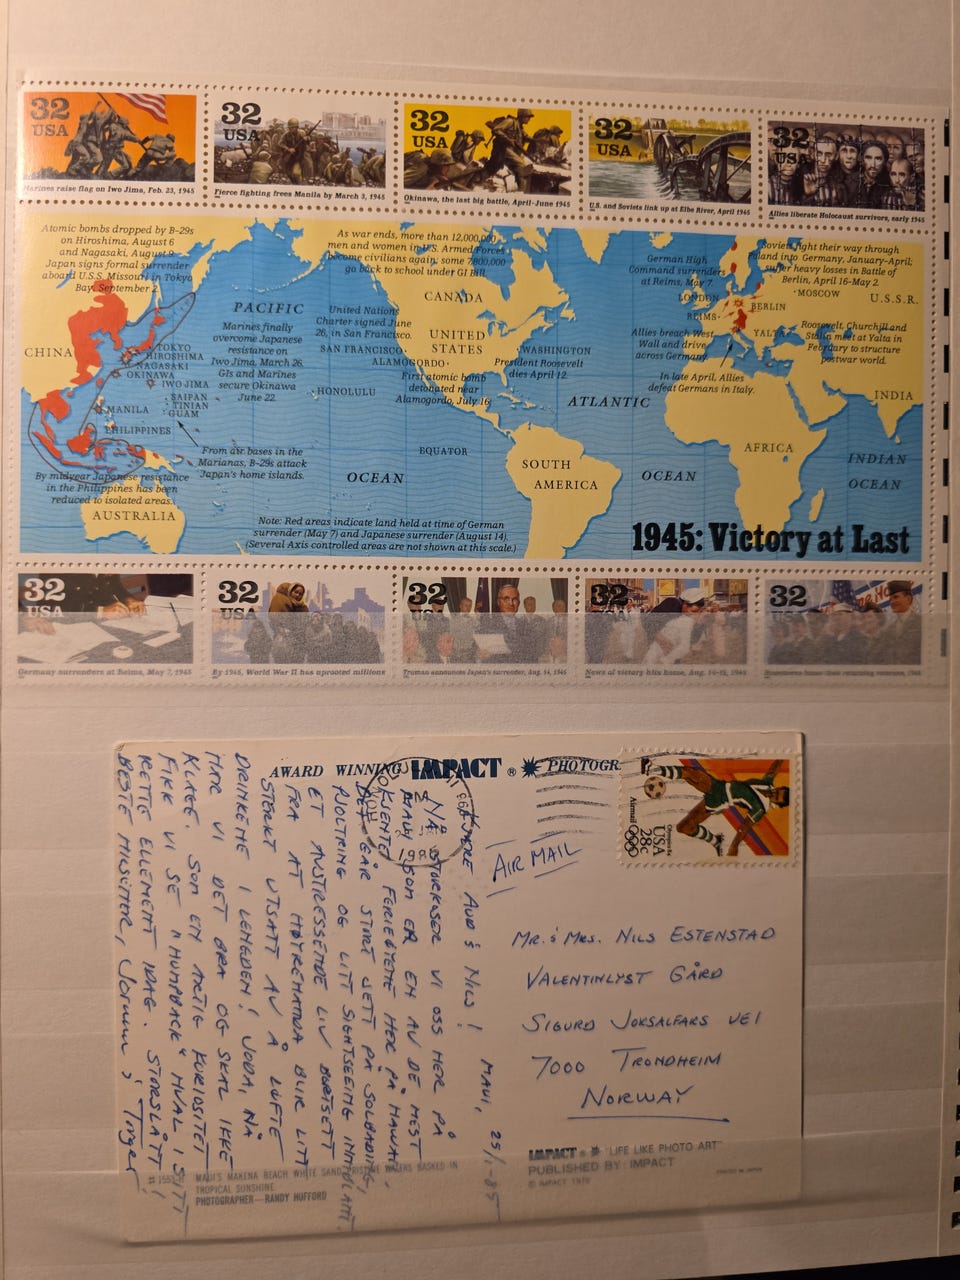 32
USA
Marines raise flag on Iwo Jima, Feb. 23, 1945
32
USA
Fierce fighting frees Manila by March 3, 1945
32
USA
Okinawa, the last big battle, April-June 1945
32
USA
U.S. and Soviets link up at Elbe River, April 1945
32
USA
Allies liberate Holocaust survivors, early 1945
Atomic bombs dropped by B-29s
on Hiroshima, August 6
and Nagasaki, August 9
Japan signs formal surrender
aboard U.S.S. Missouri in Tokyo
Bay, September 2.
As war ends, more than 12,000,000
men and women in U.S. Armed Forces
become civilians again; some 7,800,000
go back to school under GI Bill
German High
Command surrenders
at Reims, May 7.
Soviets fight their way through
Poland into Germany, January-April;
suffer heavy losses in Battle of
Berlin, April 16-May 2.
MOSCOW
U.S.S.R.
LONDON
BERLIN
REIMS
YALTA
PACIFIC
CANADA
Marines finally
overcome Japanese
resistance on
Iwo Jima, March 26.
GIs and Marines
secure Okinawa
June 22.
United Nations
Charter signed June
26, in San Francisco.
SAN FRANCISCO
UNITED
STATES
ALAMOGORDO
WASHINGTON
President Roosevelt
dies April 12.
First atomic bomb
detonated near
Alamogordo, July 16
Allies breach West
Wall and drive
across Germany
Roosevelt, Churchill and
Stalin meet at Yalta in
February to structure
postwar world.
In late April, Allies
defeat Germans in Italy.
CHINA
TOKYO
HIROSHIMA
NAGASAKI
OKINAWA
IWO JIMA
SAIPAN
TINIAN
GUAM
MANILA
PHILIPPINES
HONOLULU
ATLANTIC
INDIA
From air bases in the
Marianas, B-29s attack
Japan's home islands.
EQUATOR
AFRICA
INDIAN
OCEAN
OCEAN
SOUTH
AMERICA
OCEAN
By midyear Japanese resistance
in the Philippines has been
reduced to isolated areas.
AUSTRALIA
Note: Red areas indicate land held at time of German
surrender (May 7) and Japanese surrender (August 14).
(Several Axis controlled areas are not shown at this scale.)
1945: Victory at Last
32
USA
Germany surrenders at Reims, May 7, 1945
32
USA
By 1945, World War II has uprooted millions
32
USA
Truman announces Japan's surrender, Aug. 14, 1945
32
USA
News of victory hits home, Aug. 14-15, 1945
32
USA
Hometowns honor their returning veterans, 1945
AWARD WINNING IMPACT ® PHOTOGR
Olympics
USA
28c
Airmail
AIR MAIL
MR. & MRS. NILS ESTENSTAD
VALENTINLYST GÅRD
SIGURD JORSALFARS VEI
7000 TRONDHEIM
NORWAY
MAUI, 25/1-85
AUD & NILS!
NÅ STORKOSER VI OSS HER PÅ
MAUI SOM ER EN AV DE MEST
KJENTE FERIEØYENE HER PÅ HAWAII,
DET GÅR STORT SETT PÅ SOLBADING,
OG LITT SIGHTSEEING INNIBLANT.
ET AVSTRESSENDE LIV BORTSETT
FRA AT HØYREHANDA BLIR LITT
STERKT UTSATT AV Å LØFTE
DRINKENE I LENGDEN! JODA, NÅ
HAR VI DET BRA OG SKAL IKKE
KLAGE. SOM EN ARTIG KURIOSITET
FIKK VI SE "HUMPBACK" HVAL I SITT
RETTE ELLEMENT IDAG. STORSLÅTT!
BESTE HILSENER, Jorunn & Inger
MAUI'S MAKENA BEACH WHITE SAND PRISTINE WATERS BASKED IN
TROPICAL SUNSHINE.
PHOTOGRAPHER—RANDY HUFFORD
IMPACT ® "LIFE LIKE PHOTO ART"
PUBLISHED BY: IMPACT
© IMPACT 1978
PRINTED IN JAPAN